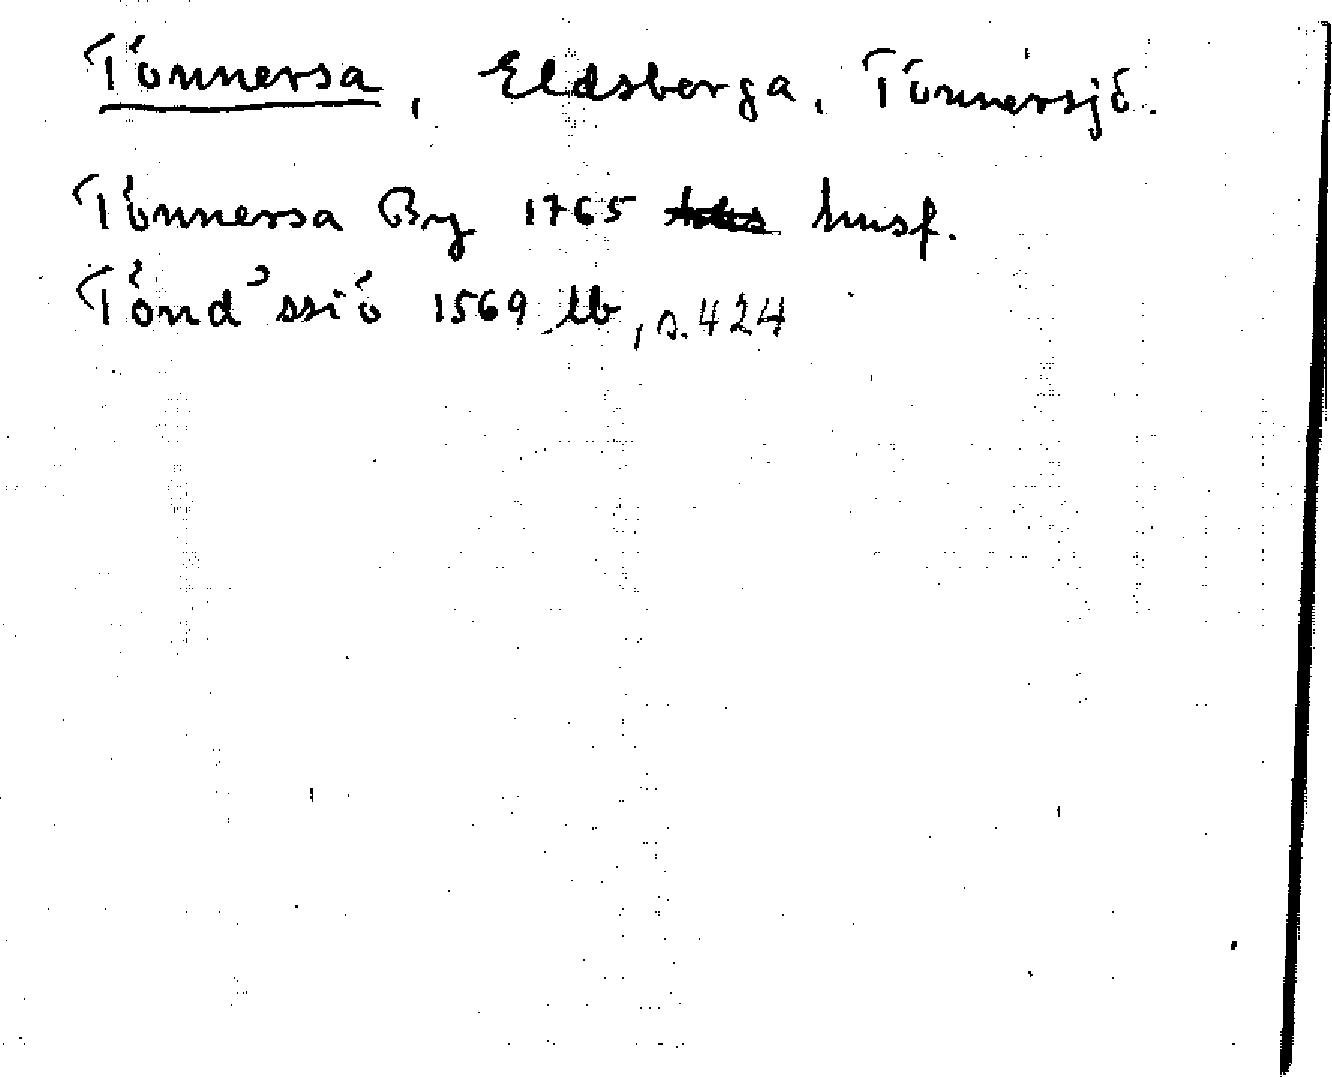 Tönnersa, Eldsberga, Tönnersjö.
Tönnersa By 1765 husf.
Tönd'ssiö 1569 lb, s. 424